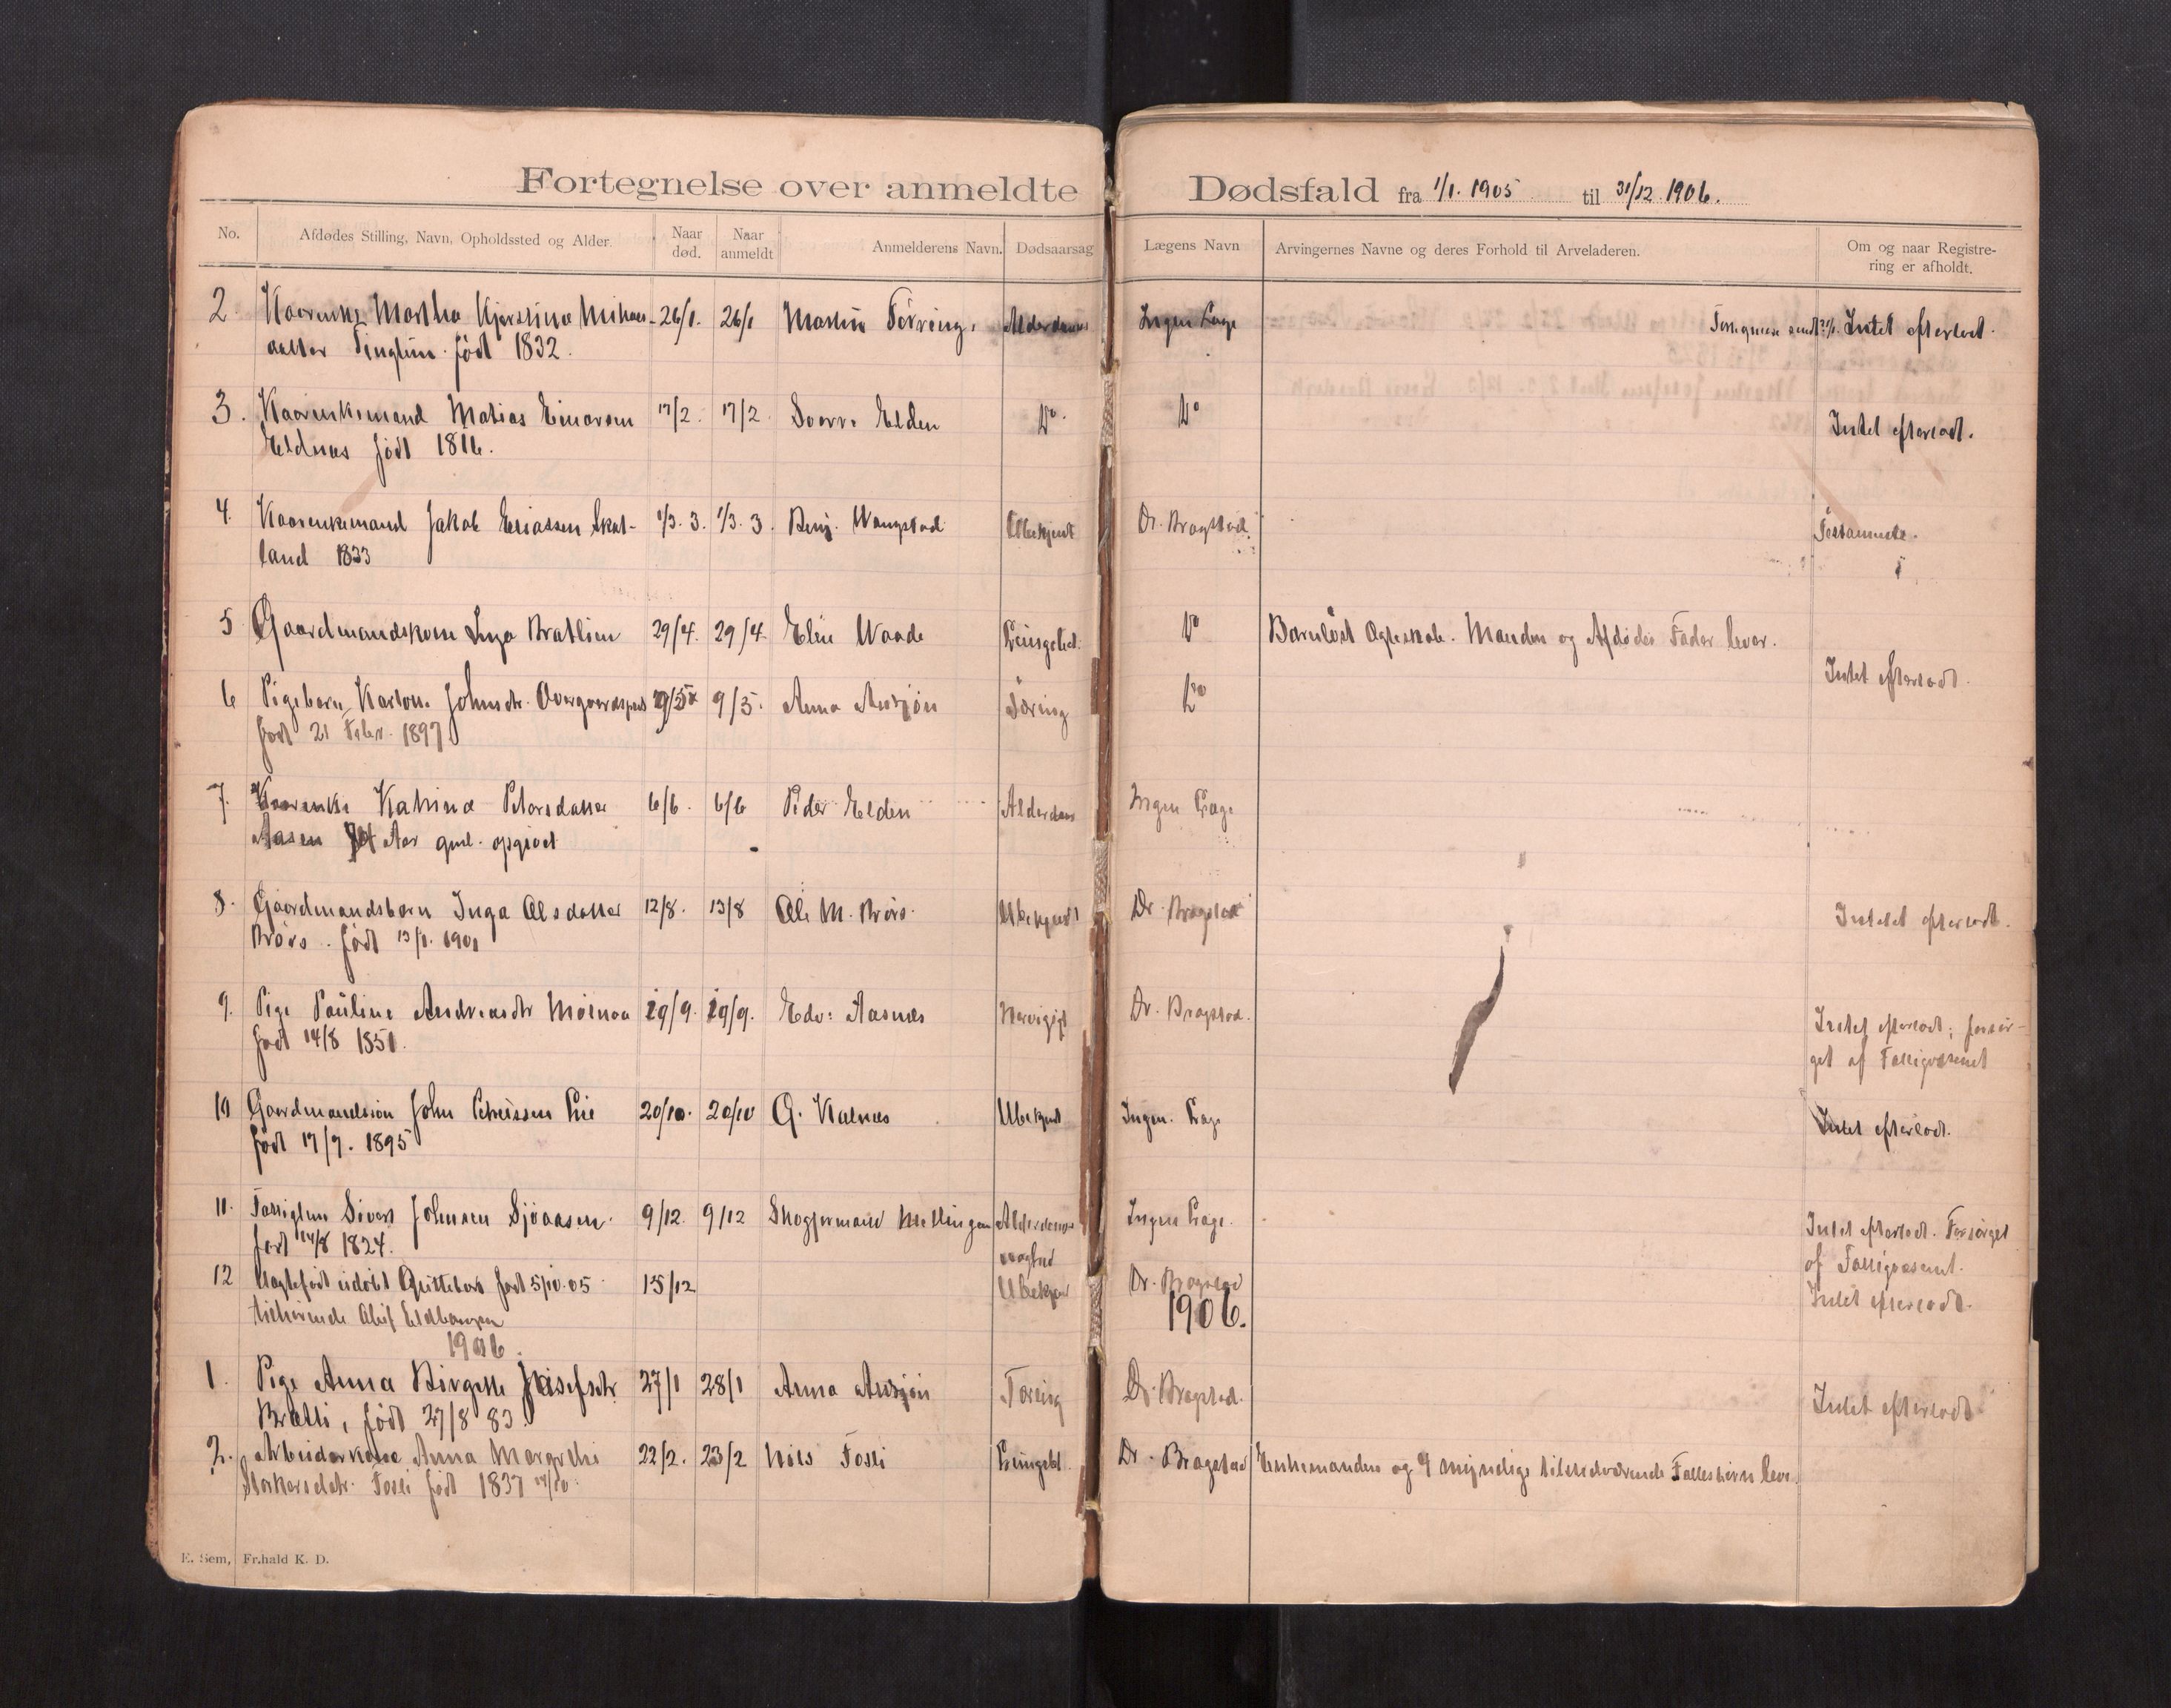 Fortegnelse over anmeldte Dødsfald fra 1/1. 1905 til 31/12. 1906.
No. Afdødes Stilling, Navn, Opholdssted og Alder. Naar død. Naar anmeldt Anmelderens Navn. Dødsaarsag Lægens Navn Arvingernes Navne og deres Forhold til Arveladeren. Om og naar Registrering er afholdt.
2. Kaarenke Martha 26/1. 26/1 Martin Tørring. Alderdom Ingen Læge Intet efterladt.
datter født 1832.
3. Kaarenkemand Matias Einarsen 17/2. 17/2 Sverre Elden Do. Do Intet efterladt.
Eldnes født 1816.
4. Kaarenkemand Jakob Eliassen Skat- 1/3. 3. 1/3. 3. Benj. Wangstad Ubekjendt Dr. Bragstad Testamente.
land 1833
5 Gaardmandskone Inga Bratlien 29/4. 29/4. Elen Waade Lungebet. Do Barnløst Ægteskab. Manden og Afdødes Fader lever.
6 Pigebarn Johnsdr. 9/5. Anna Tæring Do Intet efterladt.
født 21 Febr. 1897
7. Kaarenke Katrina Petersdatter 6/6. 6/6 Peder Elden Alderdom Ingen Læge
Aasen Aar gml. opgivet
8. Gaardmandsbarn Inga Olsdatter 12/8. 13/8 Ole M. Brørs. Ubekjendt Dr. Bragstad Intet efterladt.
Brørs. født
9. Pige Pauline Andreasdtr 19/9. 19/9. Edv: Aasnes Dr. Bragstad. Intet efterladt; forsør-
født 14/8 1851. get af Fattigvæsenet
10 Gaardmandssøn John Lie 20/10. 20/10 G. Kalnes Ubekjendt Ingen. Læge Intet efterladt.
født 17/7. 1895
11. Fattiglem Sivert Johnsen Sjøaasen. 9/12. 9/12 Mellingen Alderdoms- Ingen Læge. Intet efterladt. Forsørget
født 14/8 1824. svaghed af Fattigvæsenet.
12 Uægtefødt udøbt Guttebarn født 5/10.05 15/12 Ubekjend Dr. Bragstad Intet efterladt.
tilhørende
1906. 1906.
1. Pige Anna Birgitte Josefsdtr 27/1 28/1 Anna Tæring Dr. Bragstad. Intet efterladt
Brattli, født 27/8 83.
2. Arbeiderkone Anna Margrethe 22/2. 23/2 Nils Fosli Lungebet. Dr. Bragstad Enkemanden og 9 myndige tilstedværende Fællesbørn lever.
Fosli født 1837
E. Sem, Fr.hald K. D.